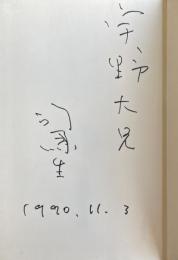 宇野大兄
生
1990.11.3